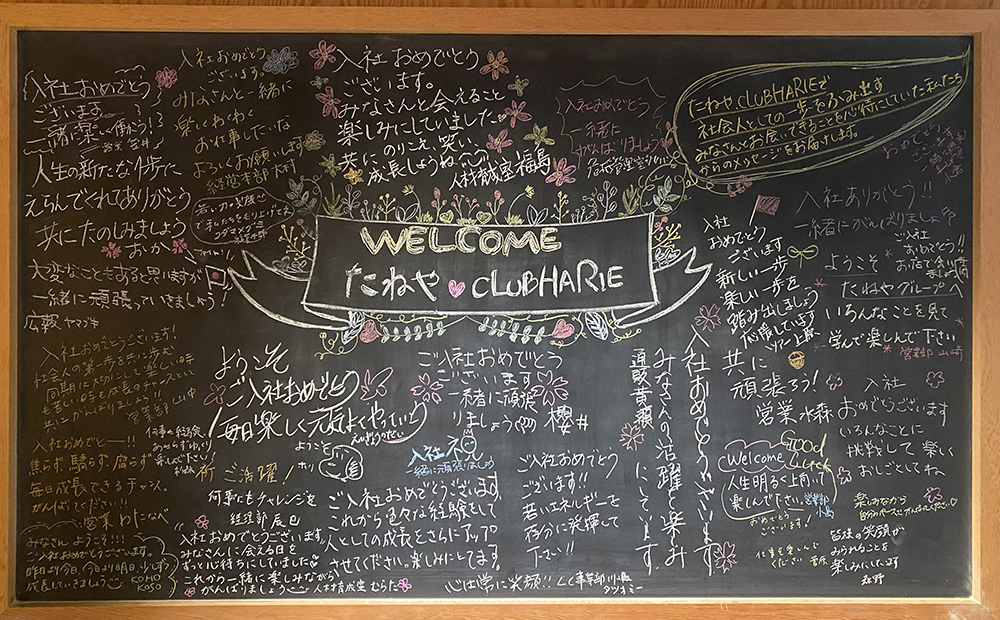 入社おめでとう
ございます
一緒に楽しく働こう!
人生の新たな1歩に
えらんでくれてありがとう
共にたのしみましょう
おか
大変なこともあると思いますが
一緒に頑張っていきましょう!
広報 ヤマゲキ
入社おめでとう
ございます。
みなさんと一緒に
楽しくわくわく
お仕事したいな
よろしくお願いします
経営本部 大村
入社おめでとう
ございます。
みなさんと会えること
楽しみにしていました
共にのりこえ、笑い、
成長しようね
人材育成室 福島
入社おめでとう
一緒に
がんばりましょう
たねや、CLUBHARIEで
社会人としての一歩をふみ出す
みなさんとお会いできることを心待ちにしていた私たち
からのメッセージをお届けします。
WELCOME
たねや CLUBHARIE
入社
おめでとう
ございます
新しい一歩
楽しい一歩を
踏み出しましょう
応援しています
入社ありがとう!!
一緒にがんばりましょ
ご入社
おめでとう!!
ようこそ
たねやグループへ
いろんなことを見て
学んで楽しんで下さい
営業部 山崎
入社おめでとうございます!
社会人の第一歩を共に歩む
同期を大切にして楽しい時
も苦しい時も成長のチャンスとして
共にがんばりましょう!!
営業部 山中
入社おめでとー!!
焦らず、驕らず、腐らず
毎日成長できるチャンス。
がんばってください!
営業 わたなべ
みなさん ようこそ!!!
ご入社おめでとうございます。
昨日より今日、今日より明日、少しずつ
成長していきましょう
ようこそ
ご入社おめでとう
毎日楽しく元気よくやっていこう
祈 ご活躍!
何事にもチャレンジを
経理部 辰巳
ようこそ
ホリ
入社おめでとうございます
みなさんに会える日を
ずっと心待ちにしていました
これから一緒に楽しみながら
がんばりましょう
人材育成室 むらた
ご入社おめでとう
ございます
一緒に頑張
りましょう
櫻井
入社祝
一緒に頑張りましょう
ご入社おめでとうございます
これから色々な経験をして
人としての成長をさらにアップ
させてください。楽しみにしてます。
ご入社おめでとう
ございます!!
若いエネルギーを
存分に発揮して
下さい!!
心は常に笑顔!!
入社おめでとうございます
みなさんの活躍を楽しみ
にしています
共に
頑張ろう!
営業 水森
Welcome
GOOD
Luck
人生明るく上向いて
楽しんで下さい
おめでとう
ございます!
入社
おめでとうございます
いろんなことに
挑戦して楽しく
おしごとしてね。
仕事を楽しんで
ください
皆様の笑顔が
みられることを
楽しみにしています